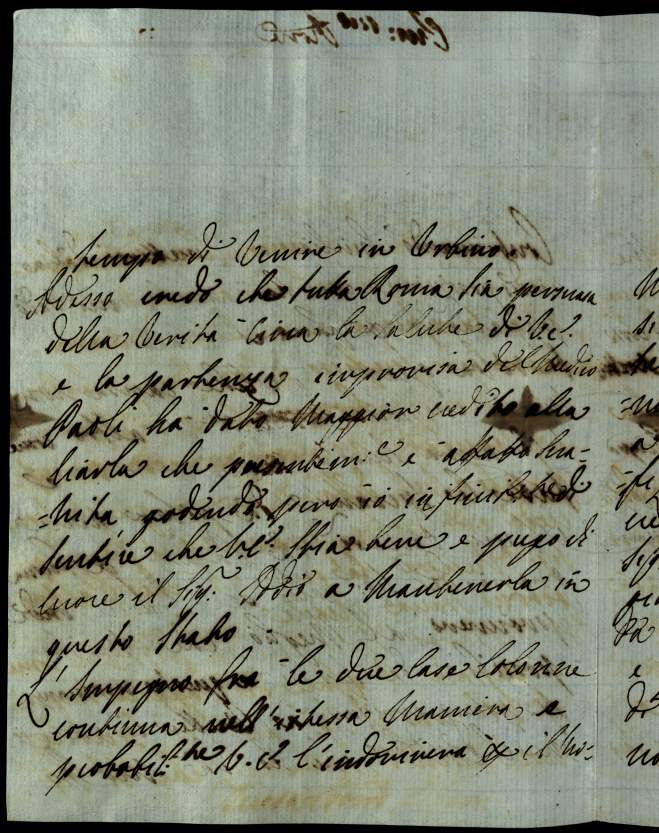 tempo di Venire in Urbino
Adesso credo che tutta Roma sia persuasa
della Verità circa la Salute di V.E.
e la partenza improvisa del Medico
Paoli ha dato Maggior credito alla
Ciarla che presentem.e è affatto sva-
=nita godendo però io infinitate di
sentire che V.E. stia bene e prego di
cuore il Sig.r Iddio a Mantenerla in
questo Stato
L'Impegno fra le due Case Colonne
continua nell'istessa Maniera e
probabil.te V.E. l'indovinerà il no-